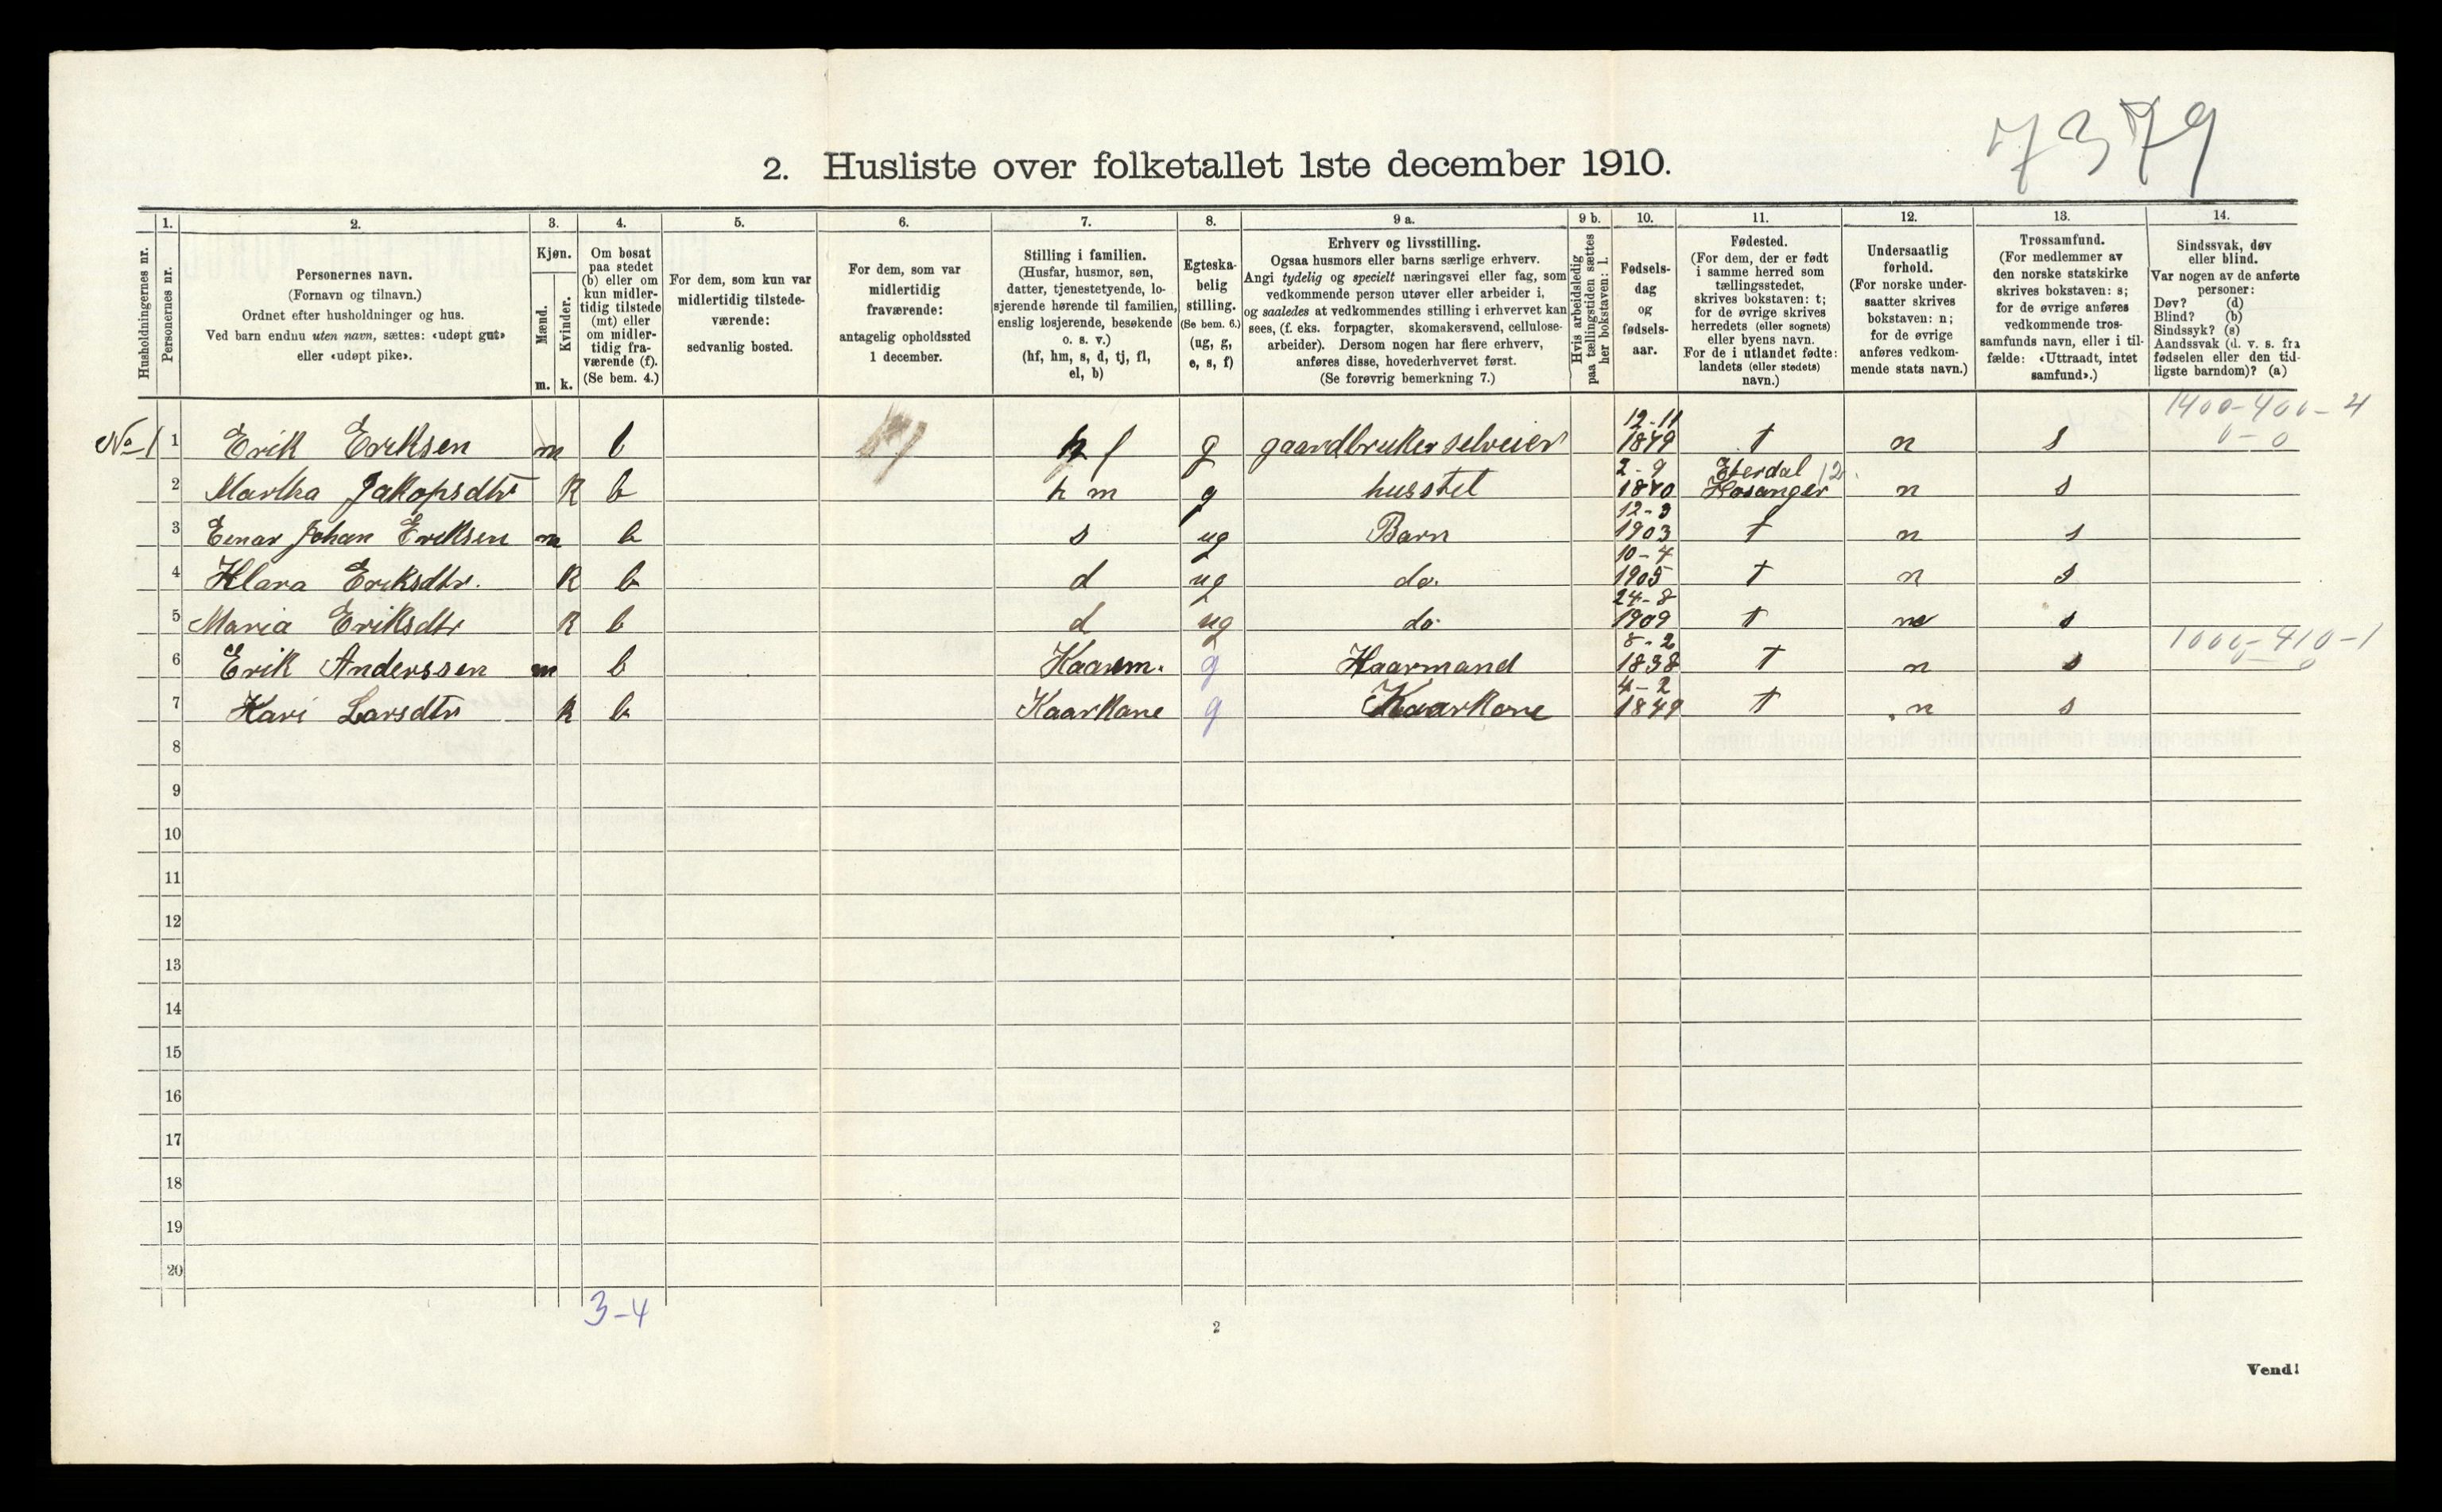 7379
2. Husliste over folketallet 1ste december 1910.
Husholdningernes nr.
1. Personernes nr.
2. Personernes navn. (Fornavn og tilnavn.) Ordnet efter husholdninger og hus. Ved barn endnu uten navn, sættes: «udøpt gut» eller «udøpt pike».
3. Kjøn. Mænd. m. Kvinder. k.
4. Om bosat paa stedet (b) eller om kun midlertidig tilstede (mt) eller om midlertidig fraværende (f). (Se bem. 4.)
5. For dem, som kun var midlertidig tilstedeværende: sedvanlig bosted.
6. For dem, som var midlertidig fraværende: antagelig opholdssted 1 december.
7. Stilling i familien. (Husfar, husmor, søn, datter, tjenestetyende, losjerende hørende til familien, enslig losjerende, besøkende o. s. v.) (hf, hm, s, d, tj, fl, el, b)
8. Egteskabelig stilling. (Se bem. 6.) (ug, g, e, s, f)
9 a. Erhverv og livsstilling. Ogsaa husmors eller barns særlige erhverv. Angi tydelig og specielt næringsvei eller fag, som vedkommende person utøver eller arbeider i, og saaledes at vedkommendes stilling i erhvervet kan sees, (f. eks. forpagter, skomakersvend, cellulosearbeider). Dersom nogen har flere erhverv, anføres disse, hovederhvervet først. (Se forøvrig bemerkning 7.)
9 b. Hvis arbeidsledig paa tællingstiden sættes her bokstaven: l.
10. Fødselsdag og fødselsaar.
11. Fødested. (For dem, der er født i samme herred som tællingsstedet, skrives bokstaven: t; for de øvrige skrives herredets (eller sognets) eller byens navn. For de i utlandet fødte: landets (eller stedets) navn.)
12. Undersaatlig forhold. (For norske undersaatter skrives bokstaven: n; for de øvrige anføres vedkommende stats navn.)
13. Trossamfund. (For medlemmer av den norske statskirke skrives bokstaven: s; for de øvrige anføres vedkommende trossamfunds navn, eller i tilfælde: «Uttraadt, intet samfund».)
14. Sindssvak, døv eller blind. Var nogen av de anførte personer: Døv? (d) Blind? (b) Sindssyk? (s) Aandssvak (d. v. s. fra fødselen eller den tidligste barndom)? (a)
1400-400-4
0-0
No 1 1 Erik Eriksen m b hf g gaardbruker selveier 12-11 1879 t n s
2 Martha Jakopsdtr k b hm g husstel 2-9 1870 Hosanger 12 n s
3 Einar Johan Eriksen m b s ug Barn 12-3 1903 t n s
4 Klara Eriksdtr. k b d ug do. 10-4 1905 t n s
5 Maria Eriksdtr k b d ug do 24-8 1909 t n s
1000-410-1
6 Erik Anderssen m b Kaarm. g Kaarmand 8-2 1838 t n s
7 Kari Larsdtr k b Kaarkone g Kaarkone 4-2 1849 t n s
8
9
10
11
12
13
14
15
16
17
18
19
20
3-4
2
Vend!